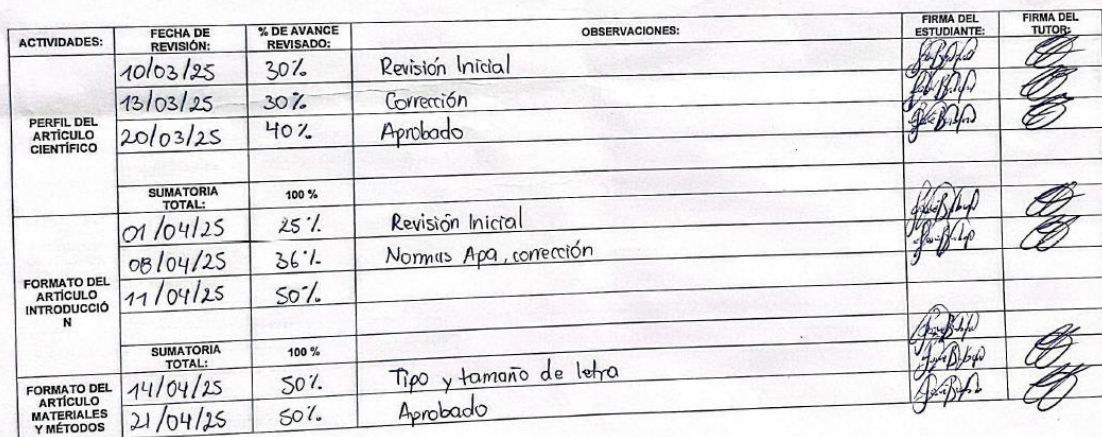 ACTIVIDADES: FECHA DE REVISIÓN: % DE AVANCE REVISADO: OBSERVACIONES: FIRMA DEL ESTUDIANTE: FIRMA DEL TUTOR:
PERFIL DEL ARTÍCULO CIENTÍFICO
10/03/25 30% Revisión Inicial
13/03/25 30% Corrección
20/03/25 40% Aprobado
SUMATORIA TOTAL: 100 %
FORMATO DEL ARTÍCULO INTRODUCCIÓ
N
01/04/25 25% Revisión Inicial
08/04/25 36% Normas Apa, corrección
11/04/25 50%
SUMATORIA TOTAL: 100 %
FORMATO DEL ARTÍCULO MATERIALES Y MÉTODOS
14/04/25 50% Tipo y tamaño de letra
21/04/25 50% Aprobado